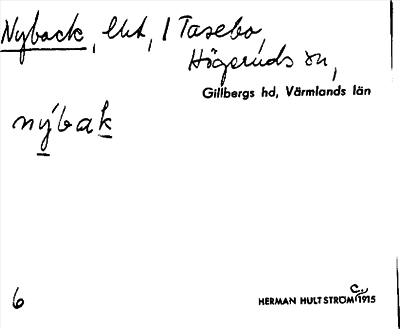 Nyback, lht, / Tasebo,
Högeruds sn,
Gillbergs hd, Värmlands län
nýbak
6
HERMAN HULTSTRÖM C. 1915